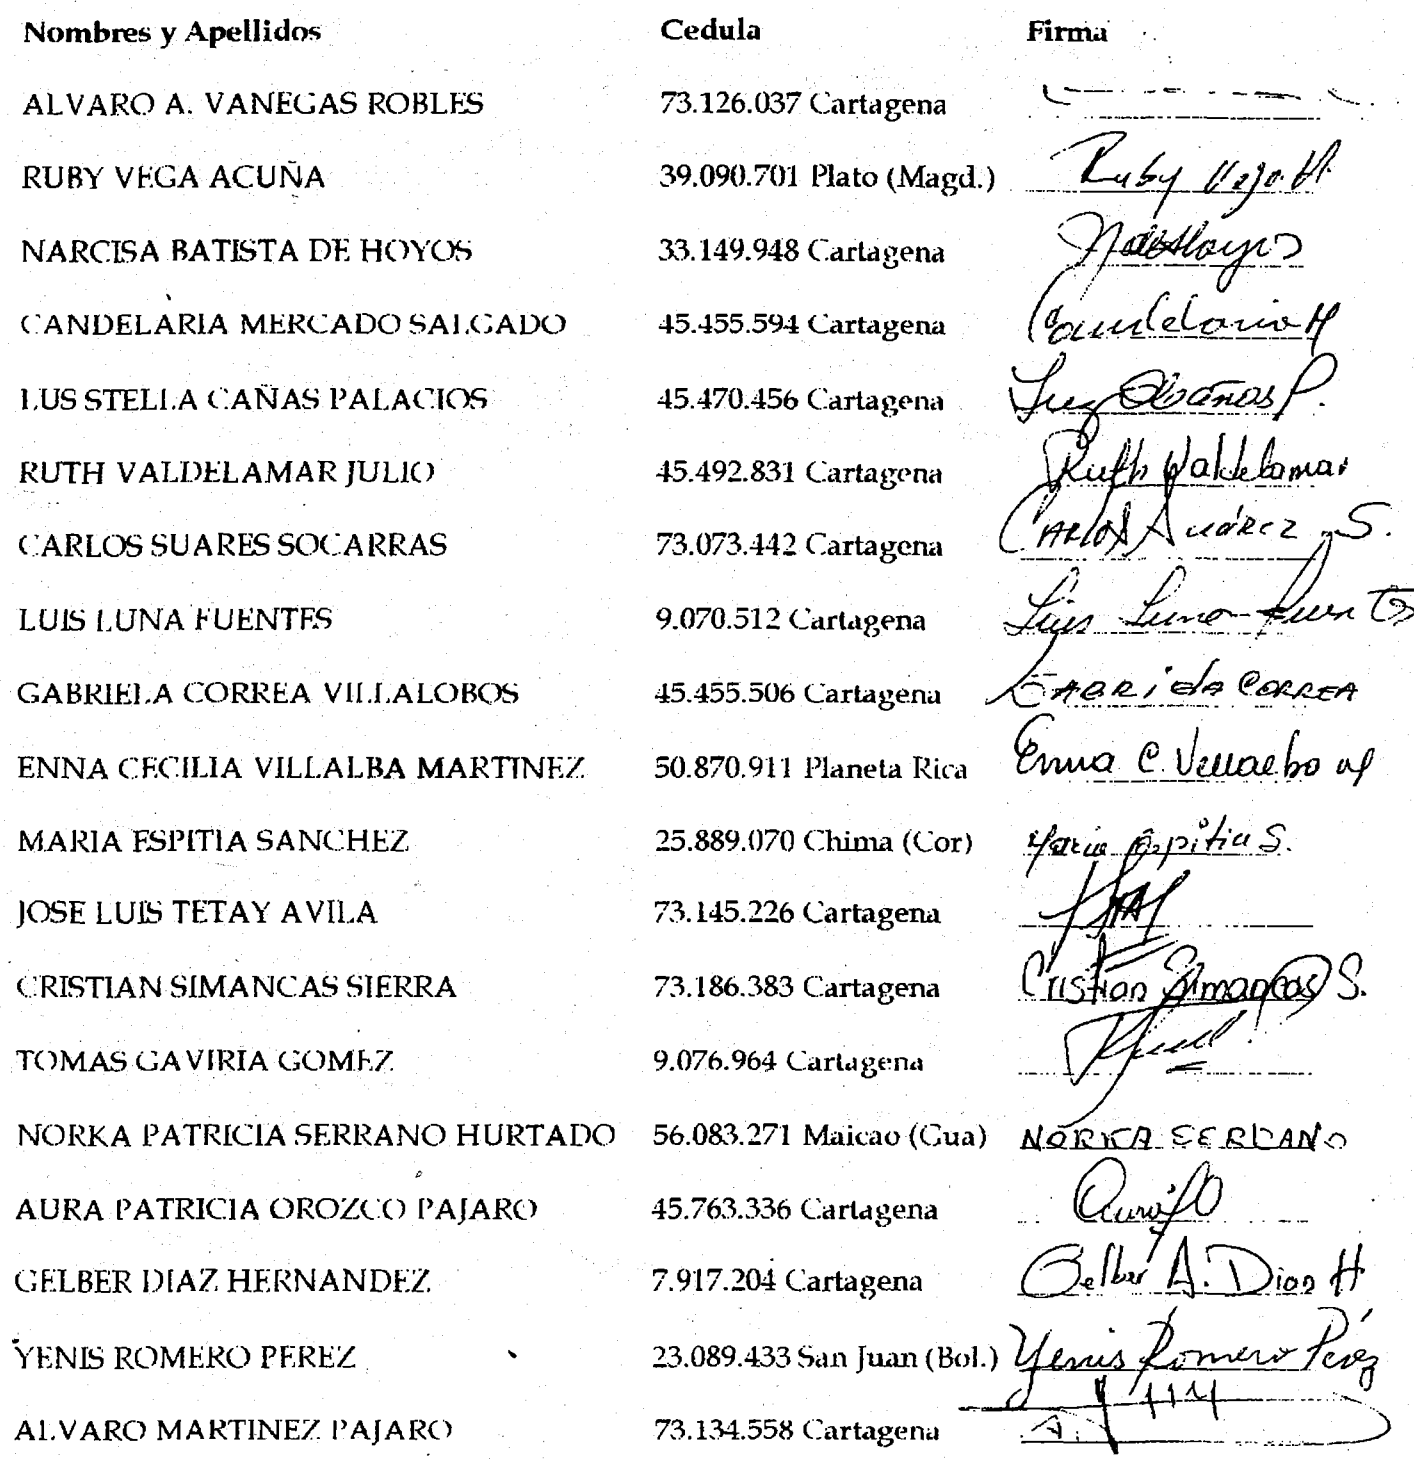 Nombres y Apellidos Cedula Firma
ALVARO A. VANEGAS ROBLES 73.126.037 Cartagena
RUBY VEGA ACUÑA 39.090.701 Plato (Magd.) Ruby Vega
NARCISA BATISTA DE HOYOS 33.149.948 Cartagena NdeHoyos
CANDELARIA MERCADO SALGADO 45.455.594 Cartagena Candelaria M
LUS STELLA CAÑAS PALACIOS 45.470.456 Cartagena Luz Cañas P.
RUTH VALDELAMAR JULIO 45.492.831 Cartagena Ruth Valdelamar
CARLOS SUARES SOCARRAS 73.073.442 Cartagena CARLOS SUÁREZ S.
LUIS LUNA FUENTES 9.070.512 Cartagena Luis Luna Fuentes
GABRIELA CORREA VILLALOBOS 45.455.506 Cartagena GABRiela CORREA
ENNA CECILIA VILLALBA MARTINEZ 50.870.911 Planeta Rica Enna C. Villalba M
MARIA ESPITIA SANCHEZ 25.889.070 Chima (Cor) Maria Espitia S.
JOSE LUIS TETAY AVILA 73.145.226 Cartagena
CRISTIAN SIMANCAS SIERRA 73.186.383 Cartagena Cristian Simancas S.
TOMAS GAVIRIA GOMEZ 9.076.964 Cartagena
NORKA PATRICIA SERRANO HURTADO 56.083.271 Maicao (Gua) NORKA SERRANO
AURA PATRICIA OROZCO PAJARO 45.763.336 Cartagena
GELBER DIAZ HERNANDEZ 7.917.204 Cartagena Gelber A. Diaz H
YENIS ROMERO PEREZ 23.089.433 San Juan (Bol.) Yenis Romero Pérez
ALVARO MARTINEZ PAJARO 73.134.558 Cartagena